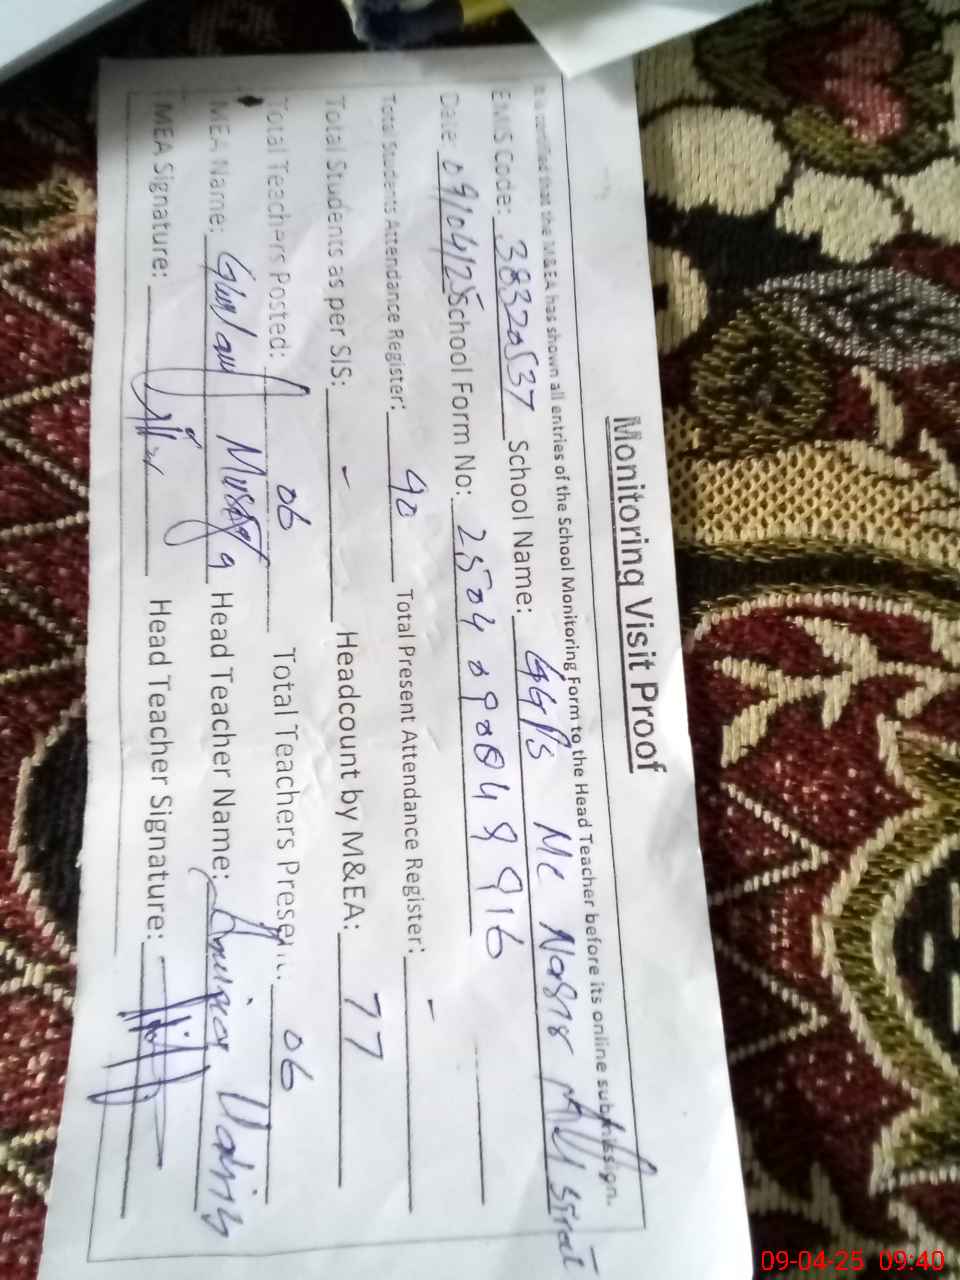 Monitoring Visit Proof
It is certified that the M&EA has shown all entries of the School Monitoring Form to the Head Teacher before its online submission.
EMIS Code: 38320537 School Name: GGPS MC Nasir Street
Date: 09/04/25 School Form No:
Total Students Attendance Register: 40 Total Present Attendance Register: -
Total Students as per SIS: - Headcount by M&EA: 77
Total Teachers Posted: 06 Total Teachers Present: 06
MEA Name: Mustafa Head Teacher Name:
MEA Signature: Head Teacher Signature:
09-04-25 09:40